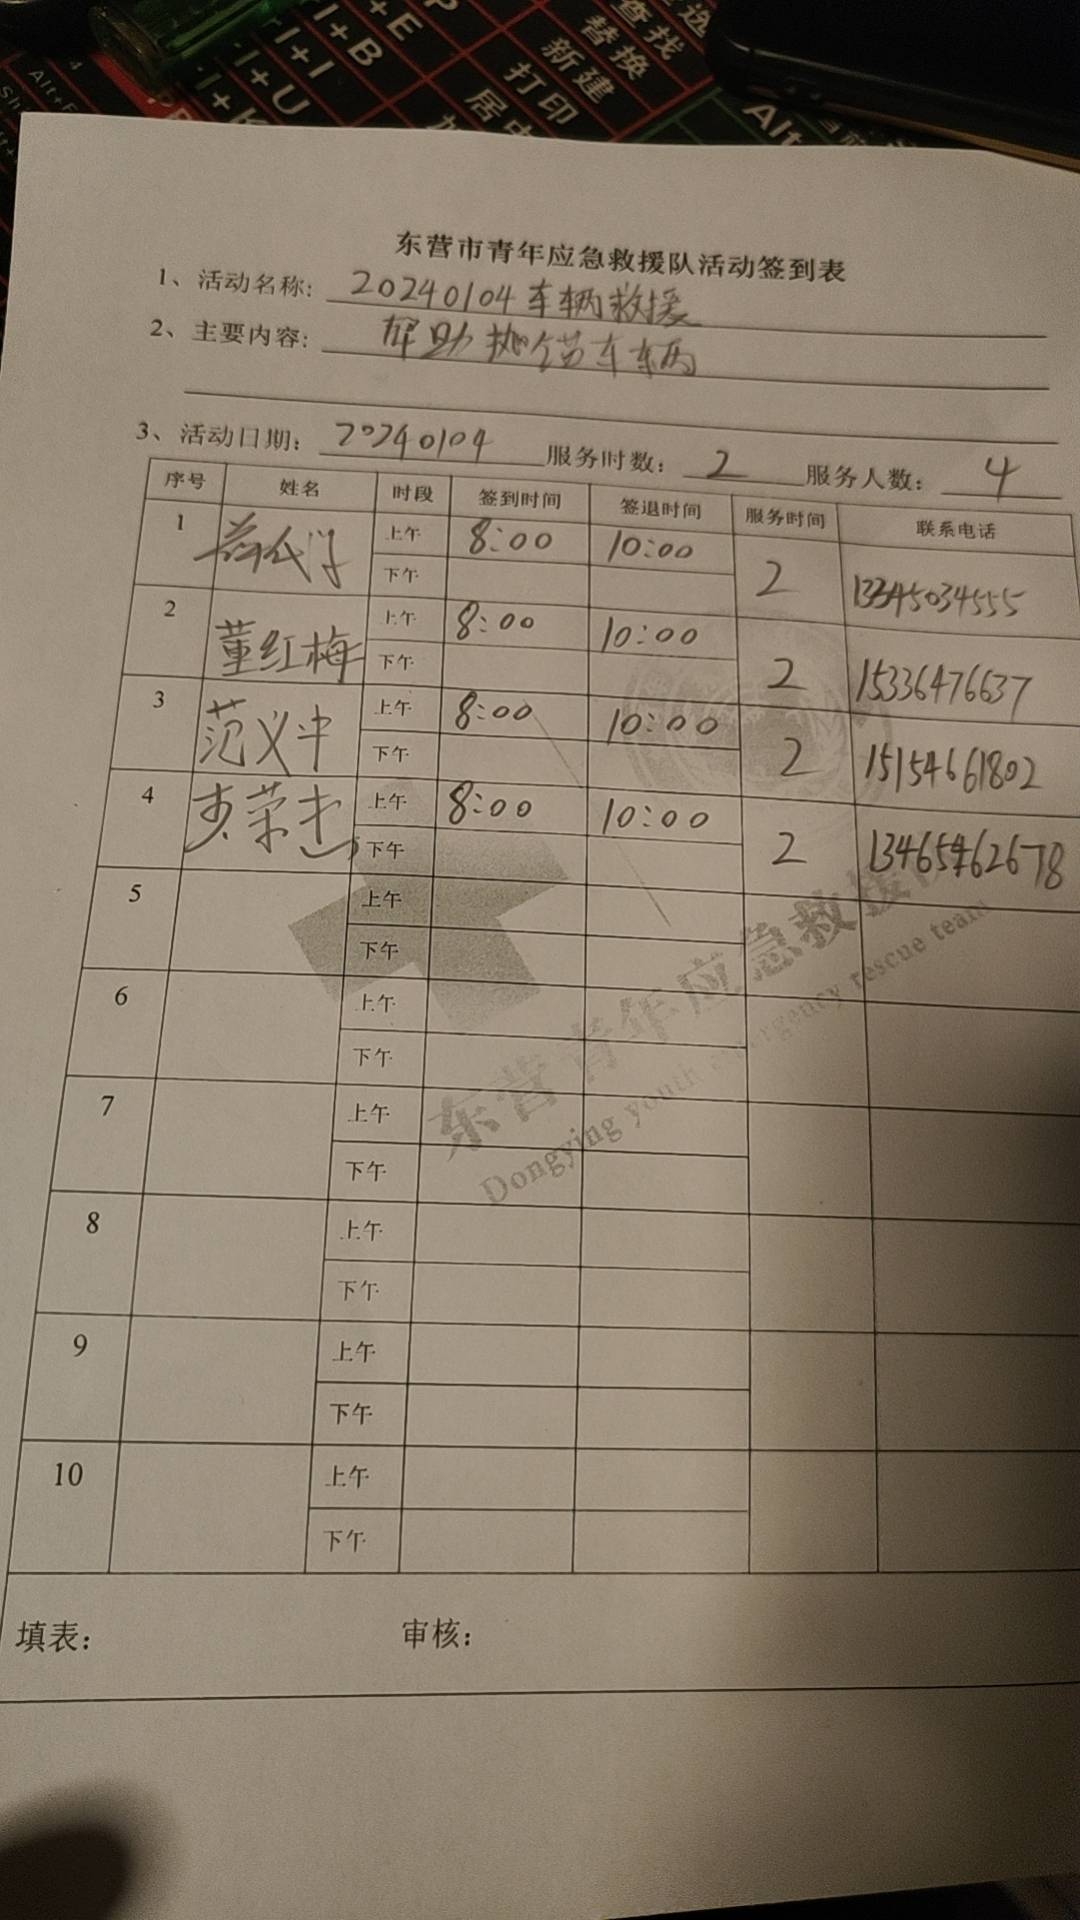 查找
替换
新建
打印
Alt
东营市青年应急救援队活动签到表
1、活动名称: 20240104车辆救援
2、主要内容: 帮助抛锚车车辆
3、活动日期: 20240104 服务时数: 2 服务人数: 4
序号 姓名 时段 签到时间 签退时间 服务时间 联系电话
1 上午 8:00 10:00 2 13345034555
下午
2 董红梅 上午 8:00 10:00 2 15336476637
下午
3 范义中 上午 8:00 10:00 2 15154661802
下午
4 上午 8:00 10:00 2 13465462678
下午
5 上午
下午
6 上午
下午
7 上午
下午
8 上午
下午
9 上午
下午
10 上午
下午
东营青年应急救援
Dongying youth emergency rescue team
填表:
审核: